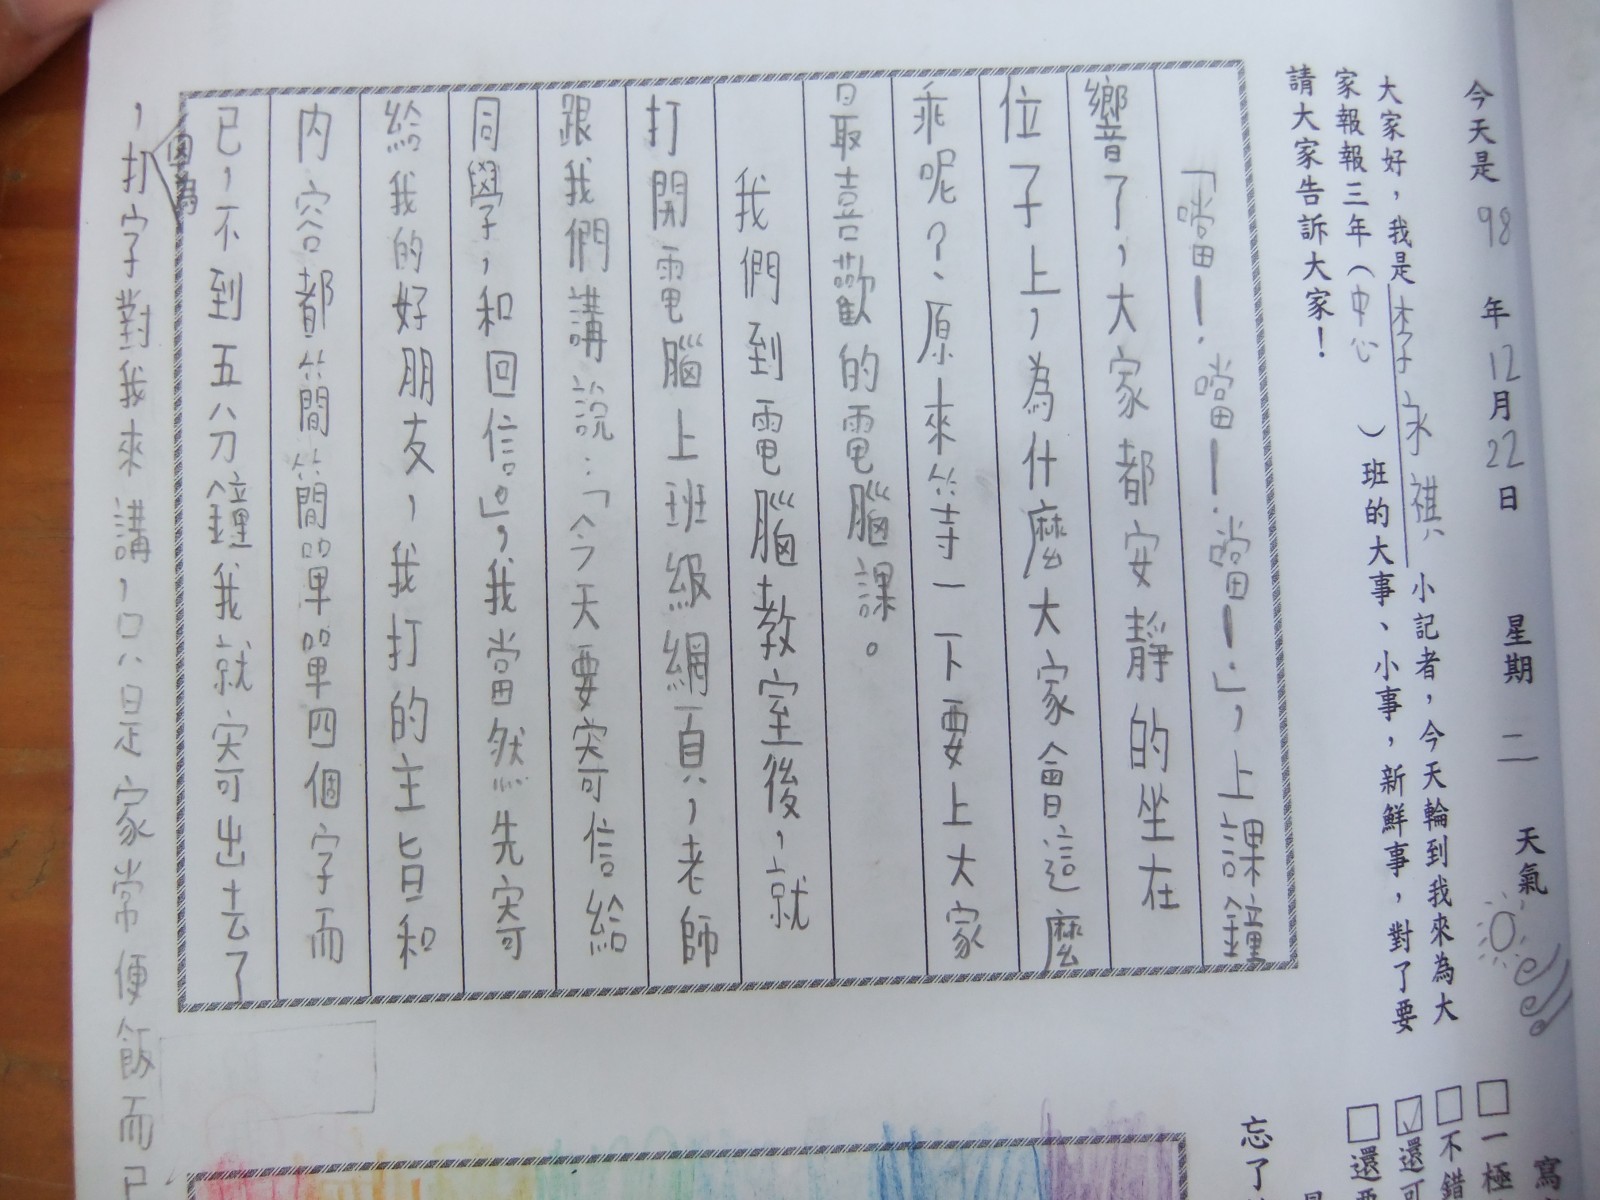 今天是 98 年 12 月 22 日 星期 二 天氣
大家好，我是李永祺小記者，今天輪到我來為大
家報報三年（中心）班的大事、小事，新鮮事，對了要
請大家告訴大家！
「噹—．噹—．噹—．」，上課鐘
響了，大家都安靜的坐在
位子上，為什麼大家會這麼
乖呢？、原來等一下要上大家
最喜歡的電腦課。
我們到電腦教室後，就
打開電腦上班級網頁，老師
跟我們講說：「今天要寄信給
同學，和回信。」，我當然先寄
給我的好朋友，我打的主旨和
內容都簡簡單單四個字而
已，不到五分鐘我就寄出去了
，因為打字對我來講，只是家常便飯而已
寫
一極
不錯
還可
還要
忘了